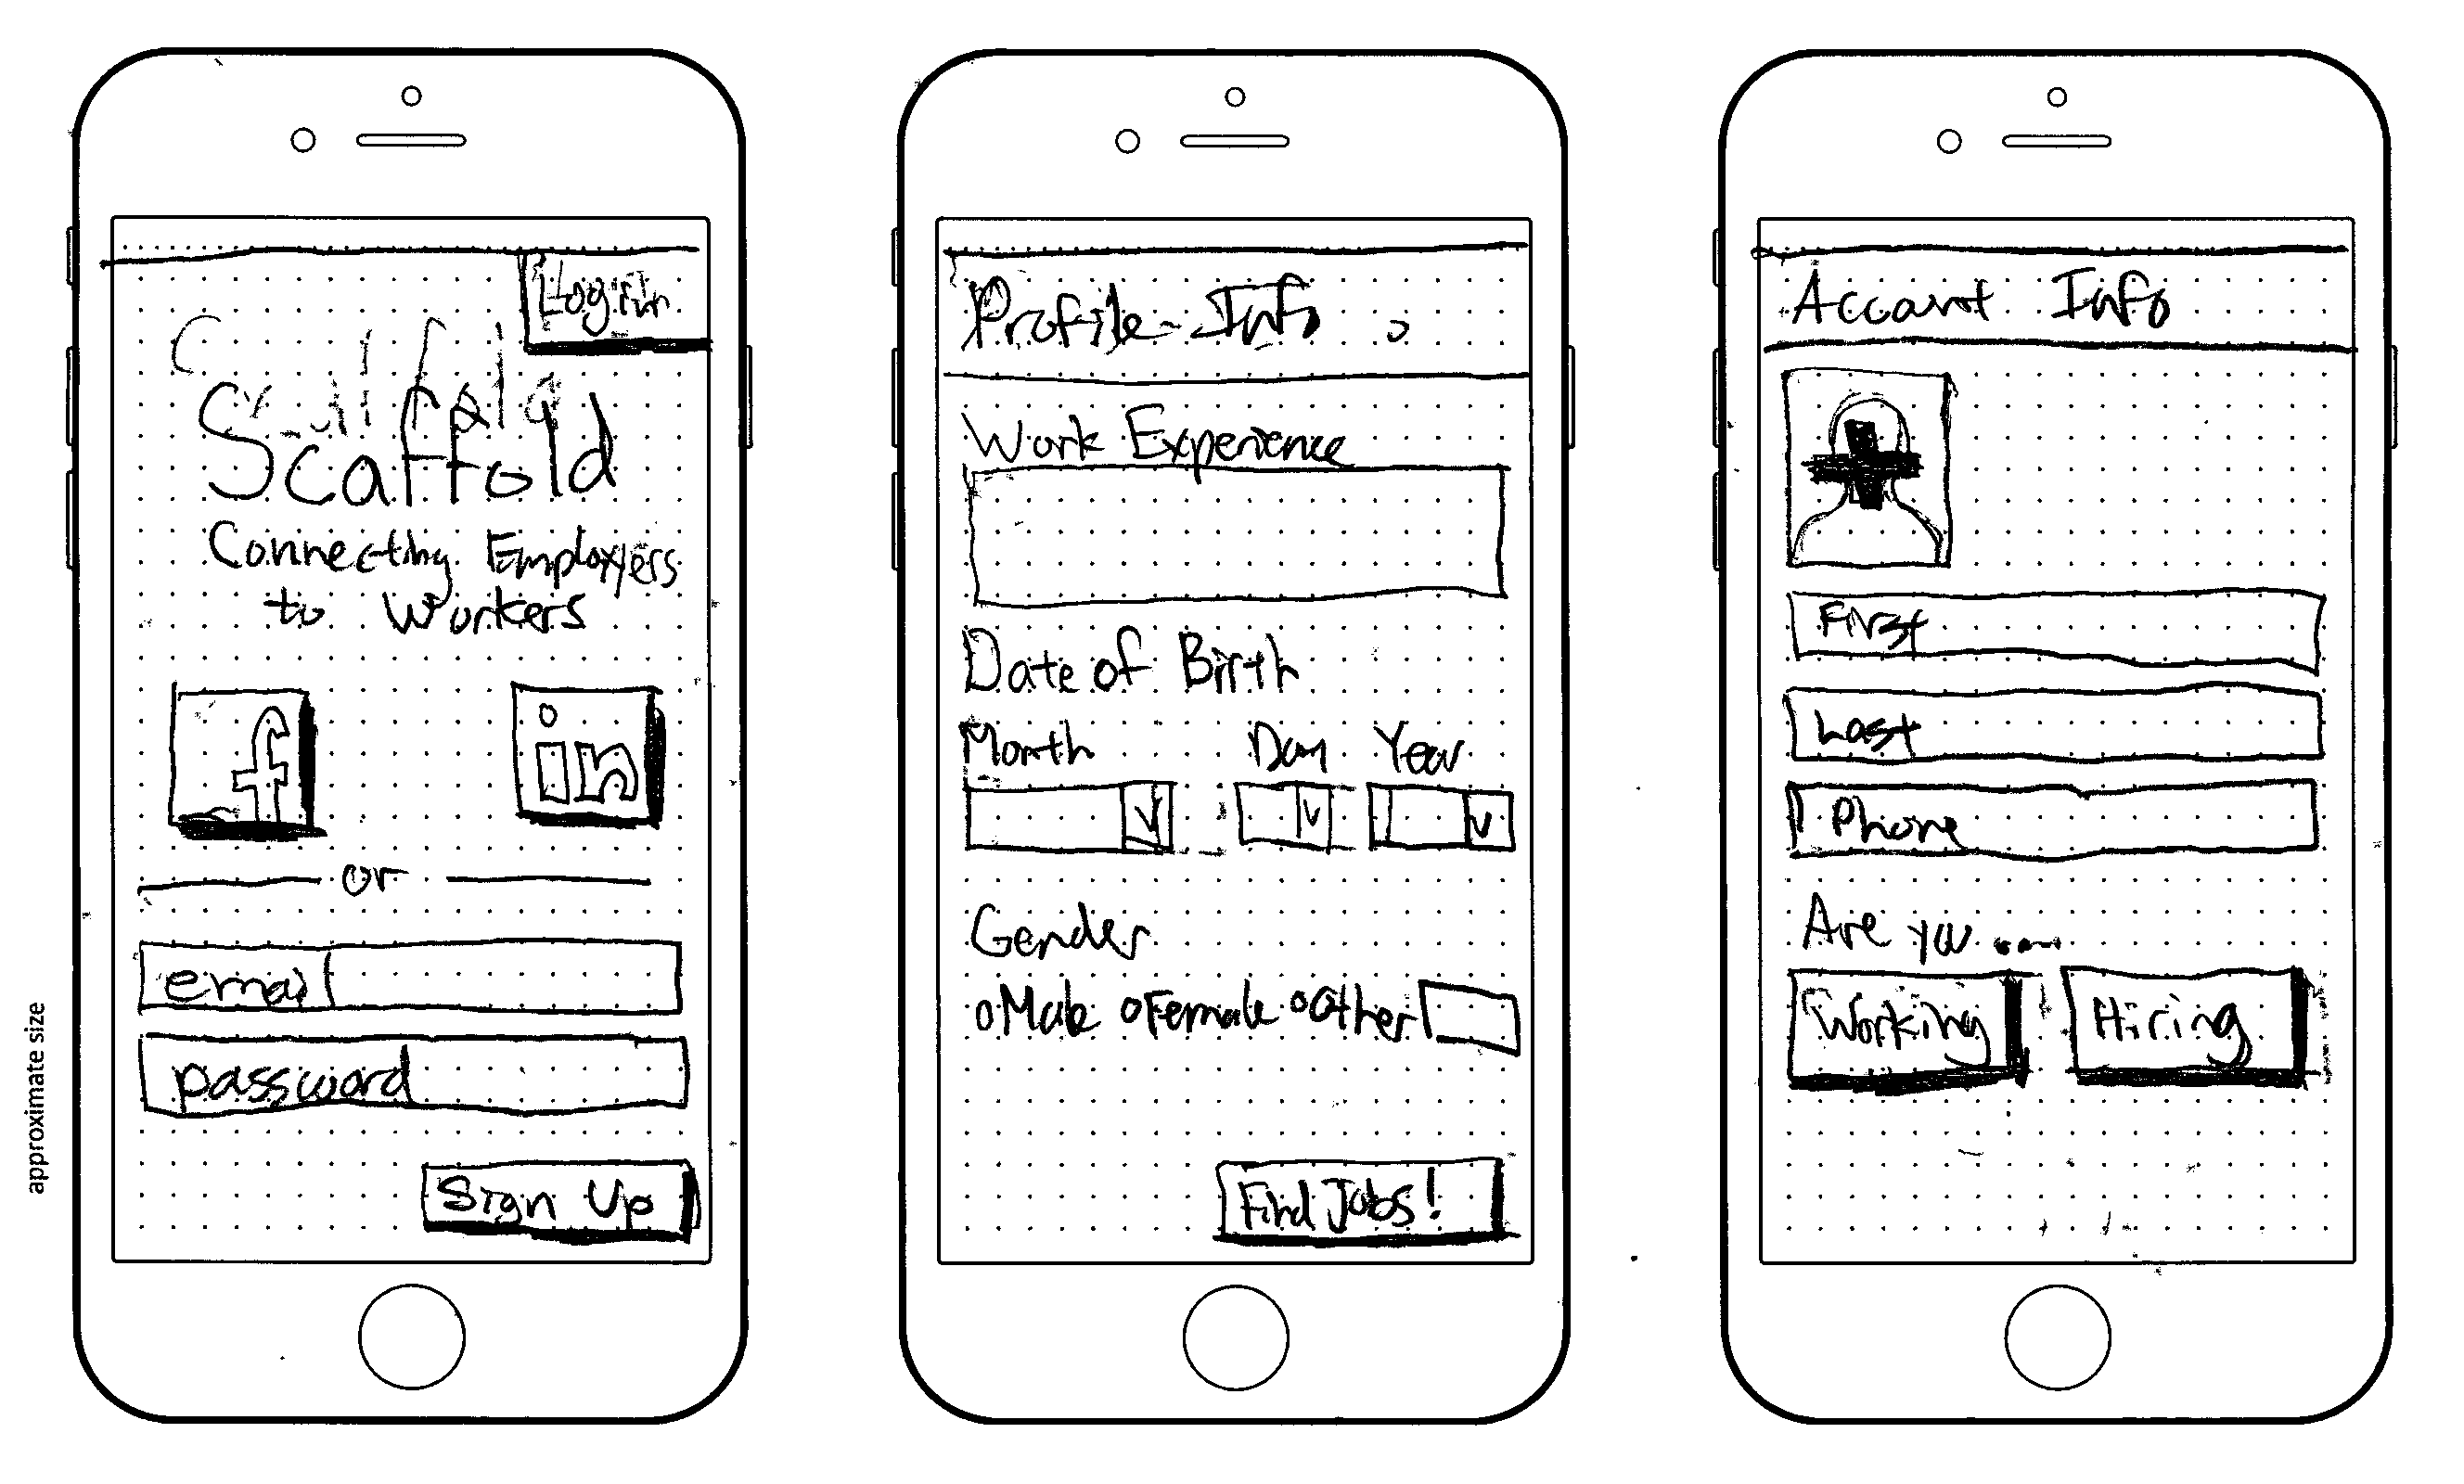 Login
Scaffold
Connecting Employers
to Workers
f
in
or
email
password
Sign Up
approximate size
Profile Info
Work Experience
Date of Birth
Month Day Year
Gender
Male Female Other
Find Jobs!
Account Info
First
Last
Phone
Are you ...
Working Hiring